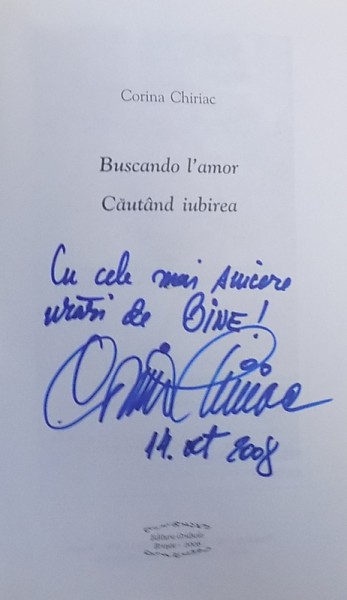 Corina Chiriac
Buscando l'amor
Căutând iubirea
Cu cele mai sincere
urări de BINE!
Corina Chiriac
14. oct 2008